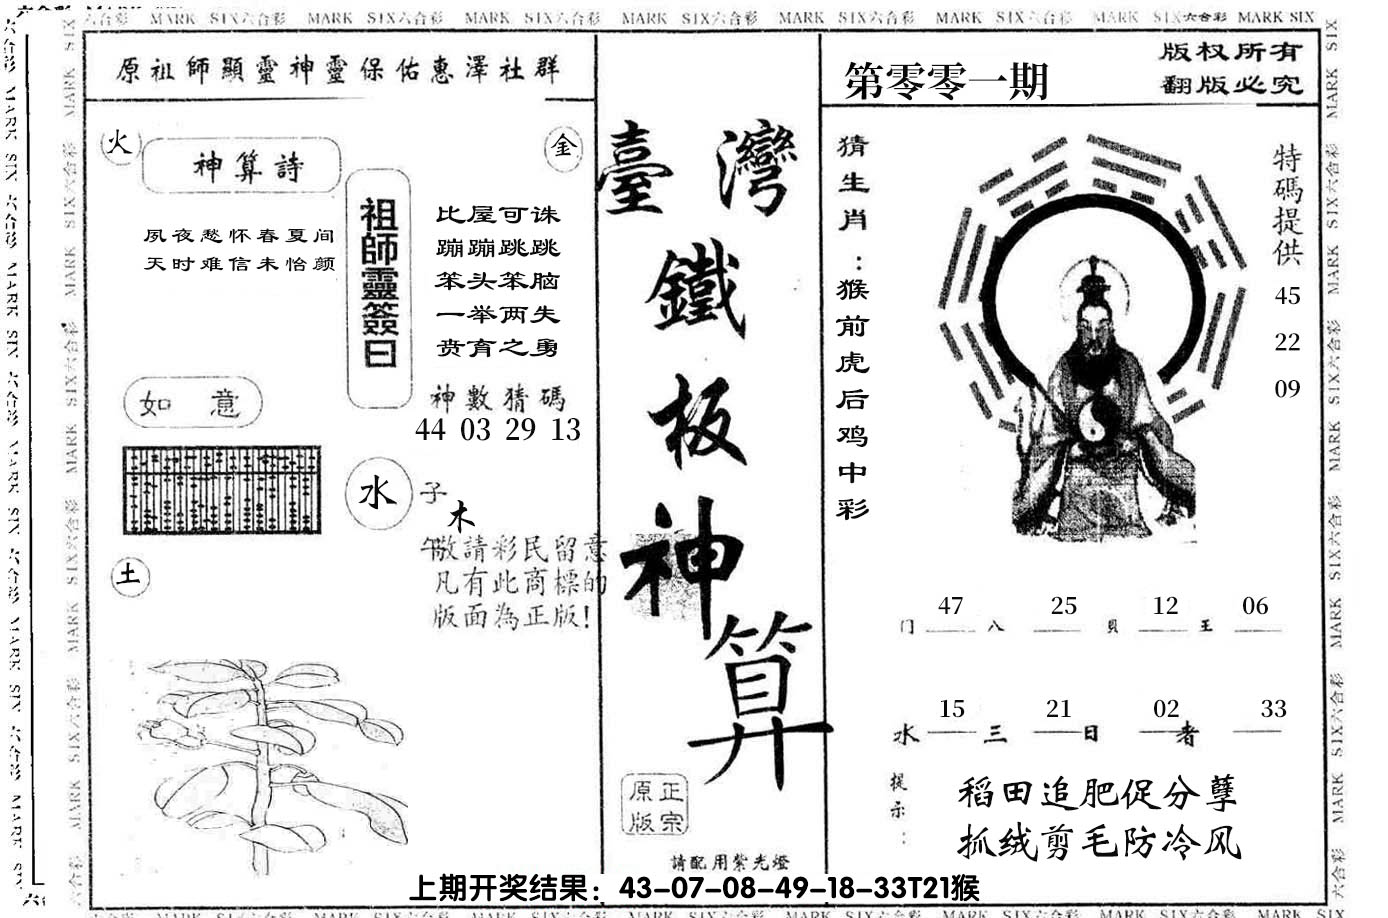 六合彩 MARK SIX六合彩 MARK SIX六合彩 MARK SIX六合彩 MARK SIX六合彩 MARK SIX六合彩 MARK SIX六合彩 MARK SIX六合彩 MARK SIX
原祖師顯靈神靈保佑惠澤社群
火
神算詩
金
夙夜愁怀春夏间
天时难信未怡颜
祖師靈簽曰
比屋可诛
蹦蹦跳跳
笨头笨脑
一举两失
贲育之勇
神數猜碼
44 03 29 13
如意
水
子
木
午
敬請彩民留意
凡有此商標的
版面為正版!
土
臺灣
鐵
板
神
算
正宗
原版
請配用紫光燈
第零零一期
版权所有
翻版必究
猜生肖:猴前虎后鸡中彩
特碼提供
45
22
09
47 25 12 06
门 八 貝 王
15 21 02 33
水 三 日 者
提示:
稻田追肥促分孽
抓绒剪毛防冷风
上期开奖结果：43-07-08-49-18-33T21猴